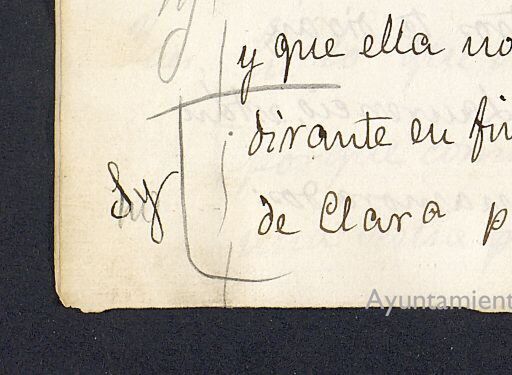 y que ella no
dirante en fin
Sy
de Clara p
Ayuntamient